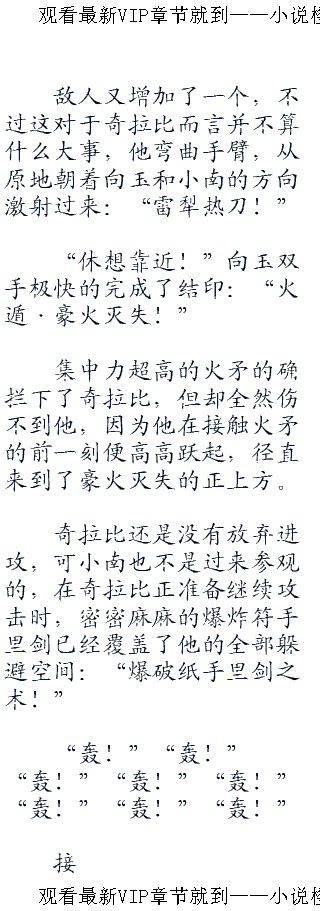 观看最新VIP章节就到——小说
敌人又增加了一个，不
过这对于奇拉比而言并不算
什么大事，他弯曲手臂，从
原地朝着向玉和小南的方向
激射过来：“雷犁热刀！”
“休想靠近！”向玉双
手极快的完成了结印：“火
遁·豪火灭失！”
集中力超高的火矛的确
拦下了奇拉比，但却全然伤
不到他，因为他在接触火矛
的前一刻便高高跃起，径直
来到了豪火灭失的正上方。
奇拉比还是没有放弃进
攻，可小南也不是过来参观
的，在奇拉比正准备继续攻
击时，密密麻麻的爆炸符手
里剑已经覆盖了他的全部躲
避空间：“爆破纸手里剑之
术！”
“轰！”“轰！”
“轰！”“轰！”“轰！”
“轰！”“轰！”“轰！”
接
观看最新VIP章节就到——小说